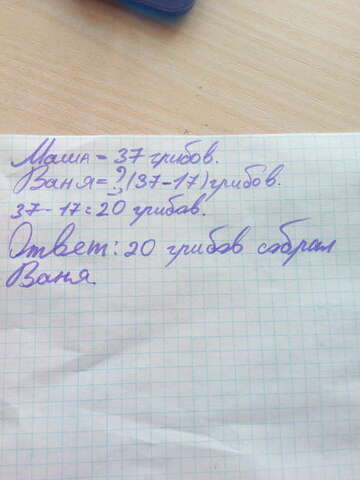 Маша = 37 грибов.
Ваня = ? (37-17) грибов.
37-17=20 грибов.
Ответ: 20 грибов собрал
Ваня.